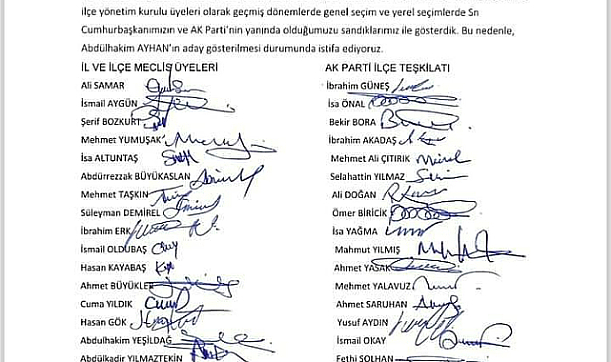 ilçe yönetim kurulu üyeleri olarak geçmiş dönemlerde genel seçim ve yerel seçimlerde Sn
Cumhurbaşkanımızın ve AK Parti'nin yanında olduğumuzu sandıklarımız ile gösterdik. Bu nedenle,
Abdülhakim AYHAN'ın aday gösterilmesi durumunda istifa ediyoruz.
İL VE İLÇE MECLİS ÜYELERİ
Ali SAMAR
İsmail AYGÜN
Şerif BOZKURT
Mehmet YUMUŞAK
İsa ALTUNTAŞ
Abdürrezzak BÜYÜKASLAN
Mehmet TAŞKIN
Süleyman DEMİREL
İbrahim ERK
İsmail OLDUBAŞ
Hasan KAYABAŞ
Ahmet BÜYÜKLER
Cuma YILDIK
Hasan GÖK
Abdulhakim YEŞİLDAĞ
Abdülkadir YILMAZTEKİN
AK PARTİ İLÇE TEŞKİLATI
İbrahim GÜNEŞ
İsa ÖNAL
Bekir BORA
İbrahim AKADAŞ
Mehmet Ali ÇITIRIK
Selahattin YILMAZ
Ali DOĞAN
Ömer BİRİCİK
İsa YAĞMA
Mahmut YILMIŞ
Ahmet YASAK
Mehmet YALAVUZ
Ahmet SARUHAN
Yusuf AYDIN
İsmail OKAY
Fethi SOLHAN